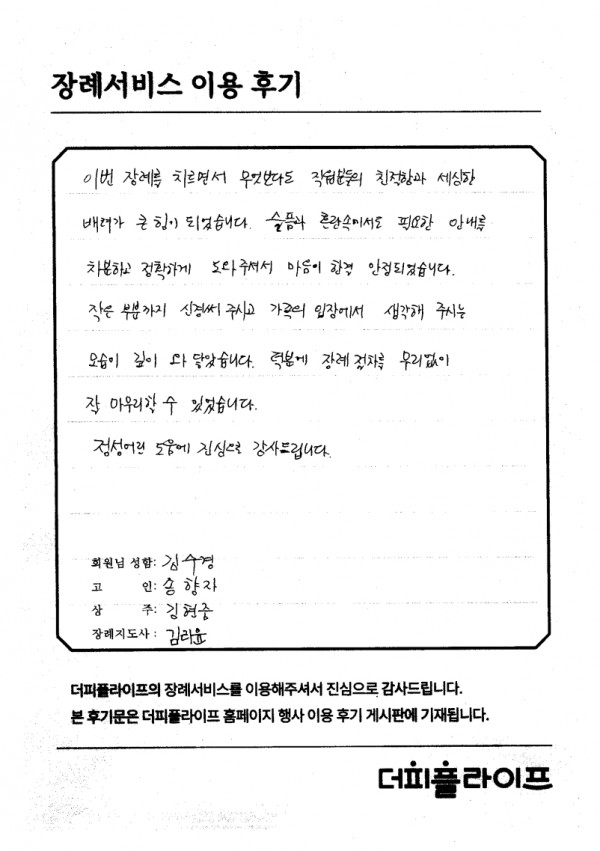 장례서비스 이용 후기
이번 장례를 치르면서 무엇보다도 직원분들의 친절함과 세심한
배려가 큰 힘이 되었습니다. 슬픔과 혼란속에서도 필요한 안내를
차분하고 정확하게 도와주셔서 마음이 한결 안정되었습니다.
작은 부분까지 신경써 주시고 가족의 입장에서 생각해 주시는
모습이 깊이 와 닿았습니다. 덕분에 장례 절차를 무리없이
잘 마무리할 수 있었습니다.
정성어린 도움에 진심으로 감사드립니다.
회원님 성함: 김수경
고 인: 송향자
상 주: 김현중
장례지도사: 김라윤
더피플라이프의 장례서비스를 이용해주셔서 진심으로 감사드립니다.
본 후기문은 더피플라이프 홈페이지 행사 이용 후기 게시판에 기재됩니다.
더피플라이프